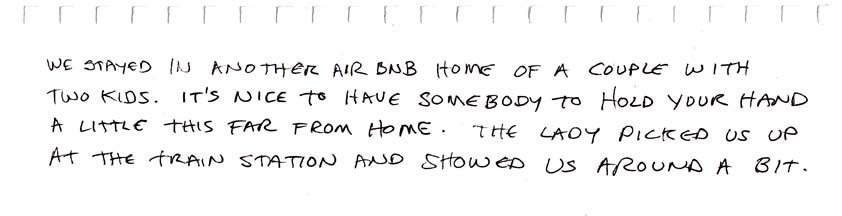 WE STAYED IN ANOTHER AIR BNB HOME OF A COUPLE WITH
TWO KIDS. IT'S NICE TO HAVE SOMEBODY TO HOLD YOUR HAND
A LITTLE THIS FAR FROM HOME. THE LADY PICKED US UP
AT THE TRAIN STATION AND SHOWED US AROUND A BIT.